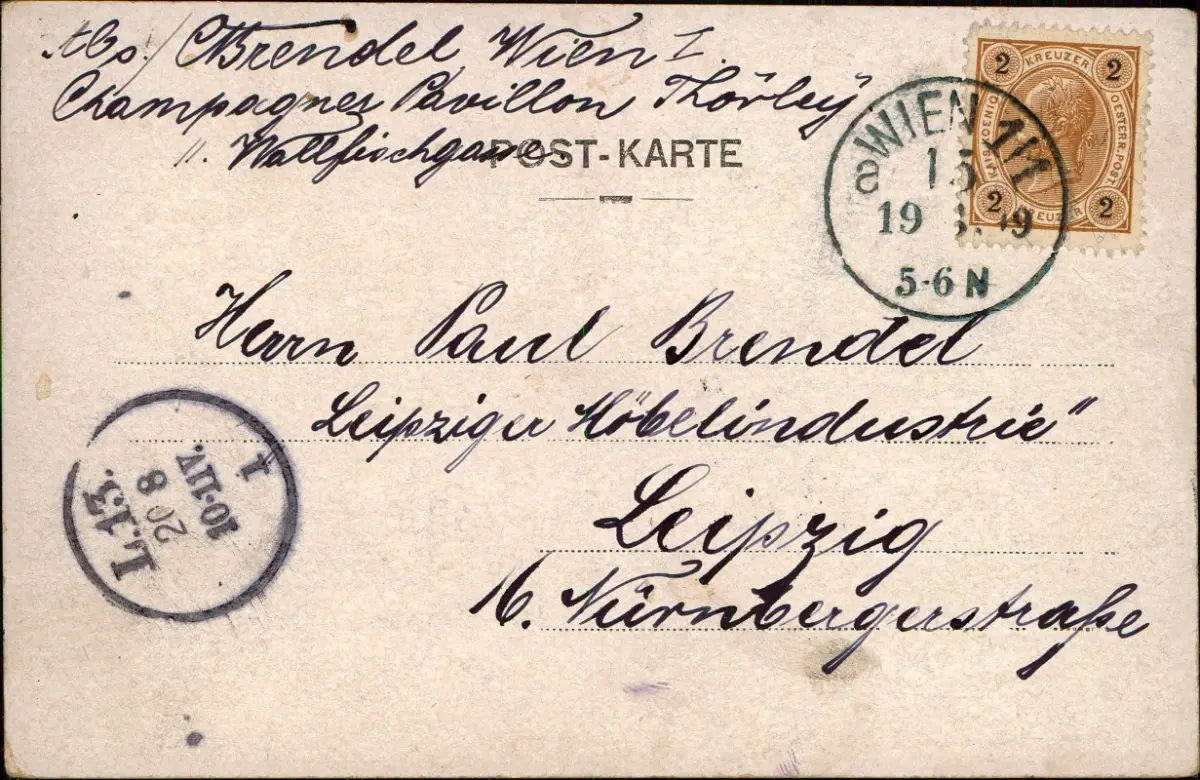 Abs./ CBrendel Wien I.
Champagner Pavillon Thörley
11. Wallfischgasse.
POST-KARTE
WIEN 1/1
15
19 8. 99
5-6 N
2 KREUZER 2
KAIS. KOENIGL. OESTERR. POST
2 KREUZER 2
Herrn Paul Brendel
„Leipziger Möbelindustrie"
Leipzig
16. Nürnbergerstraße
L.13.
20 8
10-11V.
1